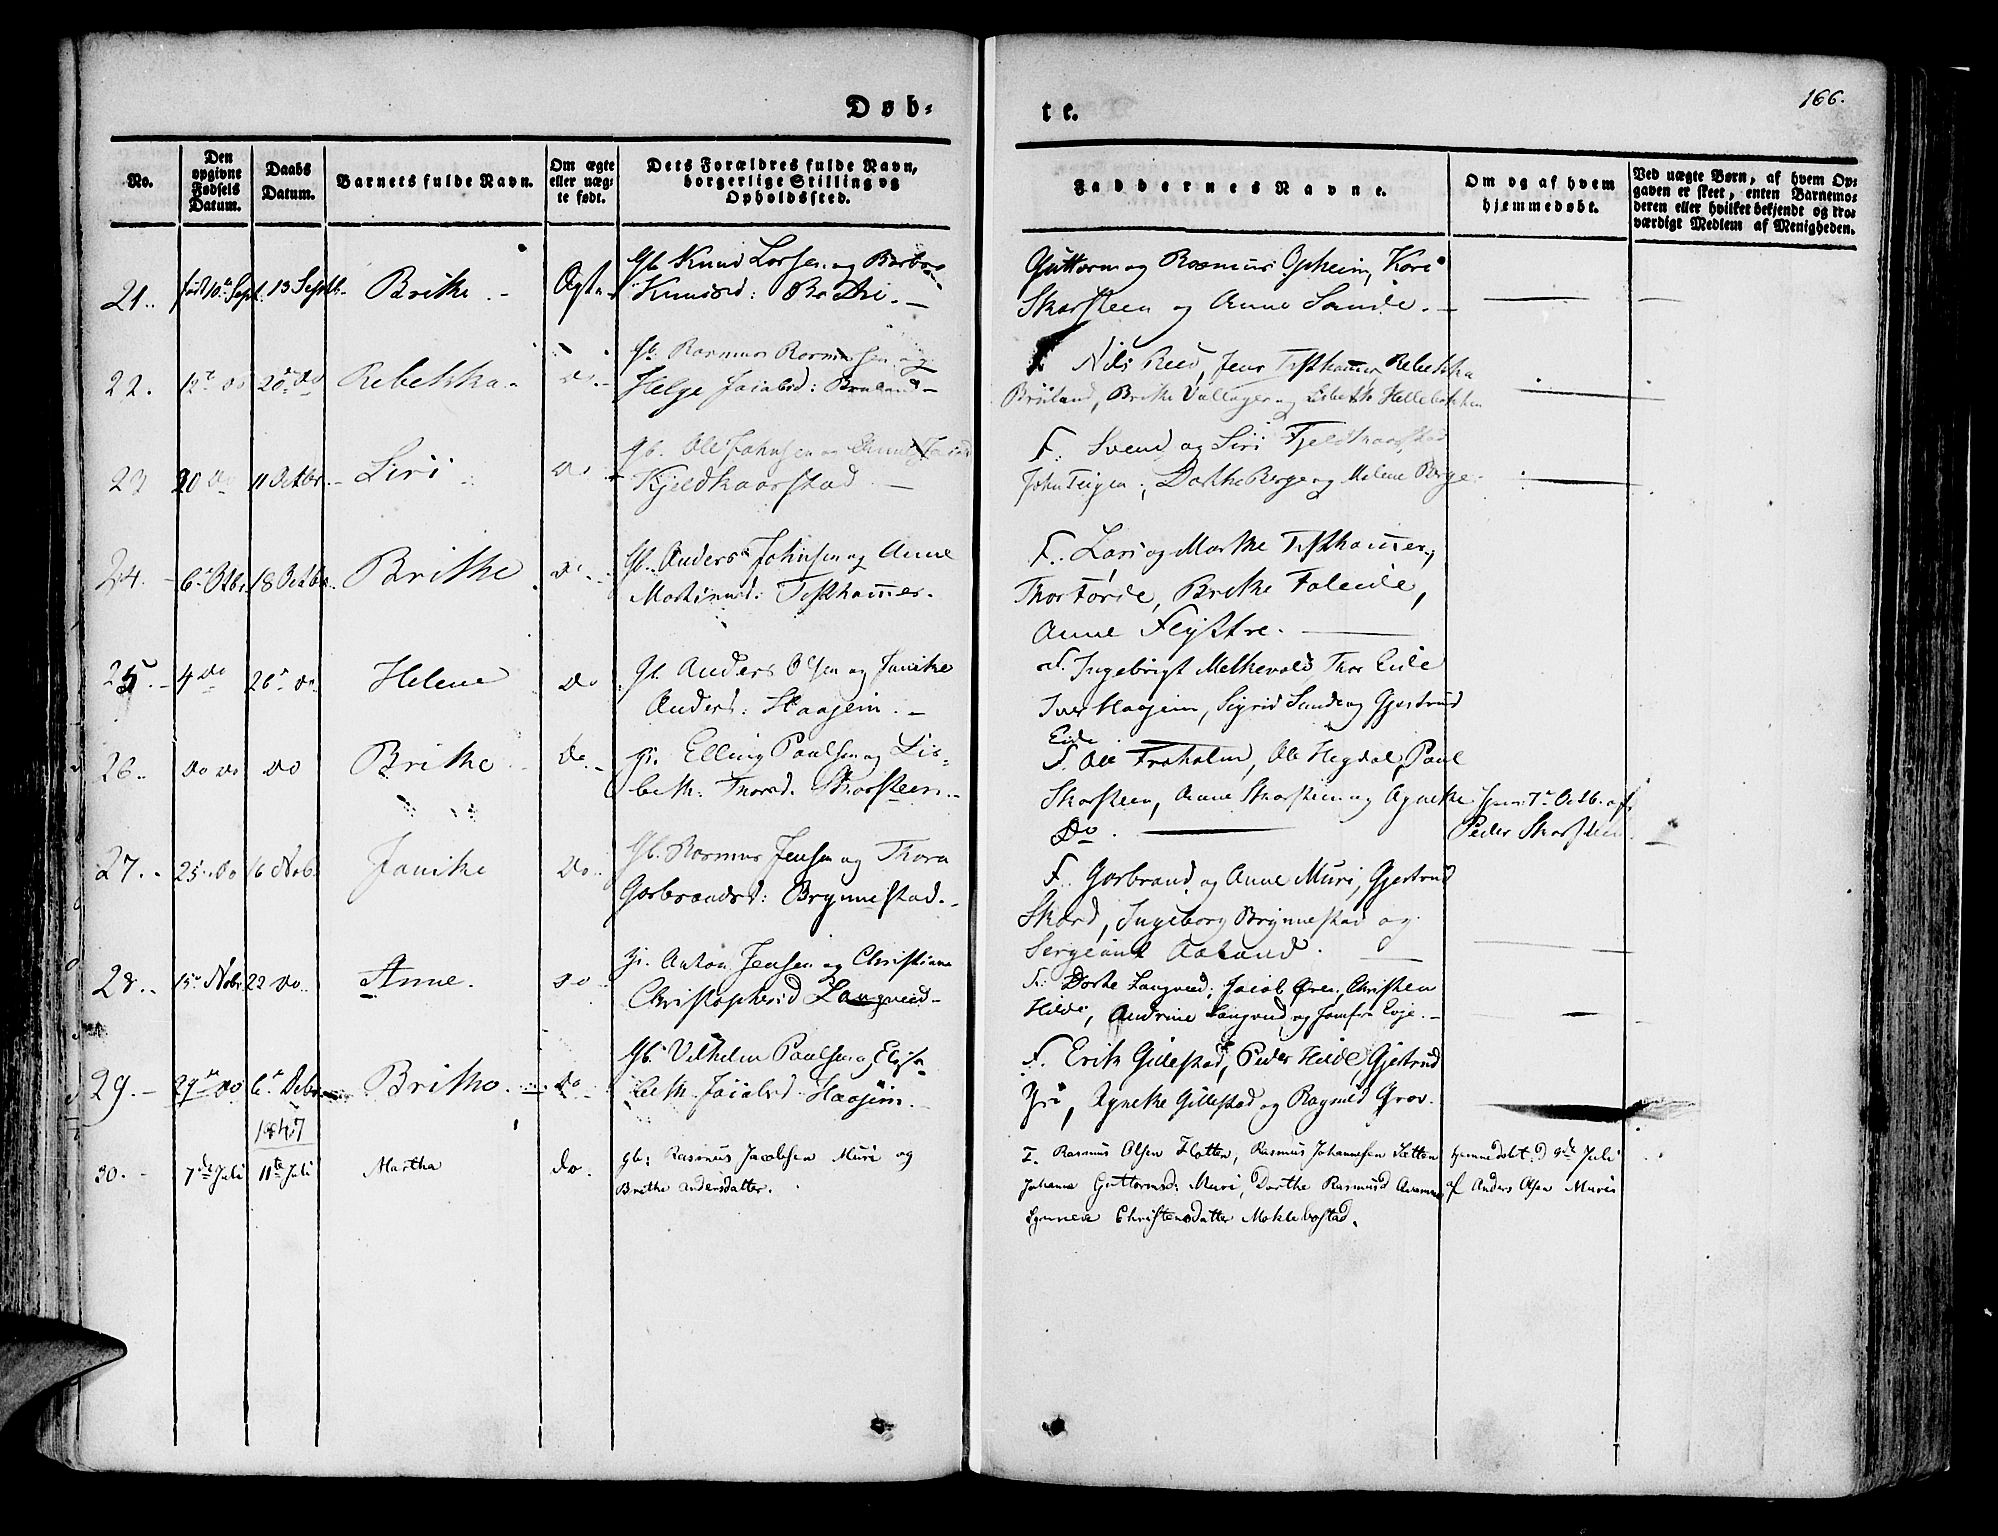 Døb-
te.
166.
No.
Den
opgivne
Fødsels
Datum.
Daabs
Datum.
Barnets fulde Navn.
Om ægte
eller uæg-
te født.
Dets Forældres fulde Navn,
borgerlige Stilling og
Opholdssted.
Faddernes Navne.
Om og af hvem
hjemmedøbt.
Ved uægte Børn, af hvem Op-
gaven er skeet, enten Barnemo-
deren eller hvilket bekjendt og tro-
værdigt Medlem af Menigheden.
21. født 10de Sept. 13 Septb. Brithe Ægte Gb. Knud Larsen og Barbra
Knudsd:
Guttorm og Rasmus Opheim, Kari
Skarsteen og Anne Sande.
22. 12te do 20de do Rebekka do Gb. Rasmus Rasmusen og
Helge Jacobsd:
Nils Reed, Jens Tisthammer Rebekka
Brithe og Lisbeth
23 20 do 11 Octbr. Siri do Gb. Ole Johnsen og
Kjeldkaarstad
F. Svend og Siri
John Teigen, Dorthe Berge og Malene Berge.
24. 6te Octbr 18 Octbr. Brithe do Gb. Anders Johnsen og Anne
Mathisd: Tisthammer.
F. Lars og Marthe Tisthammer,
Thor Førde, Brithe Faleide,
Anne Flystre.
25. 4 do 26de do Helene do Gb. Anders Olsen og Janike
Andersd: Haajem.
F. Ingebrigt Melkevold, Thor Eide
Iver Haajem, Sigrid Sande og Gjertrud
Eide
26. do do do Brithe do Gb. Elling Paulsen og Lis-
beth Thorsd. Skarsteen.
F. Ole Froholm, Ole Hegdal, Paul
Skarsteen, Anne Skarsteen og Agnethe
Do.
7de Octb. af
Peder Skarsteen
27. 25 do 16 Novb. Janike do. Gb. Rasmus Jensen og Thora
Garbrandsd: Brynnestad.
F. Garbrand og Anne Muri, Gjertrud
Skard, Ingeborg Brynnestad og
Sergeant Aaland.
28. 15de Novbr 22 do Anne. do Gb. Anton Jensen og Christianna
Christophersd Langveed
F. Dorthe Langveed, Jacob Øren, Christen
Hilde, Andrine Langveed og Eoje.
29. 29de do 6te Debr. Britha. do Gb. Vilhelm Paulsen og Elisa-
beth Jacobsd. Haajem.
F. Erik Gilestad, Peder Hilde, Gjertrud
Yri, Agnethe Gillestad og Ragnild Grov.
1847
30. 7de Juli 11te Juli Martha do. Gb: Rasmus Jacobsen Muri og
Brithe Andersdatter.
F. Rasmus Olsen Flotten, Rasmus Johannesen Sætten
Johanne Guttormsd: Muri, Dorthe Rasmusd
Synneve Christensdatter Moklebostad.
hjemmedøbt d 9de Juli
af Anders Olsen Muri